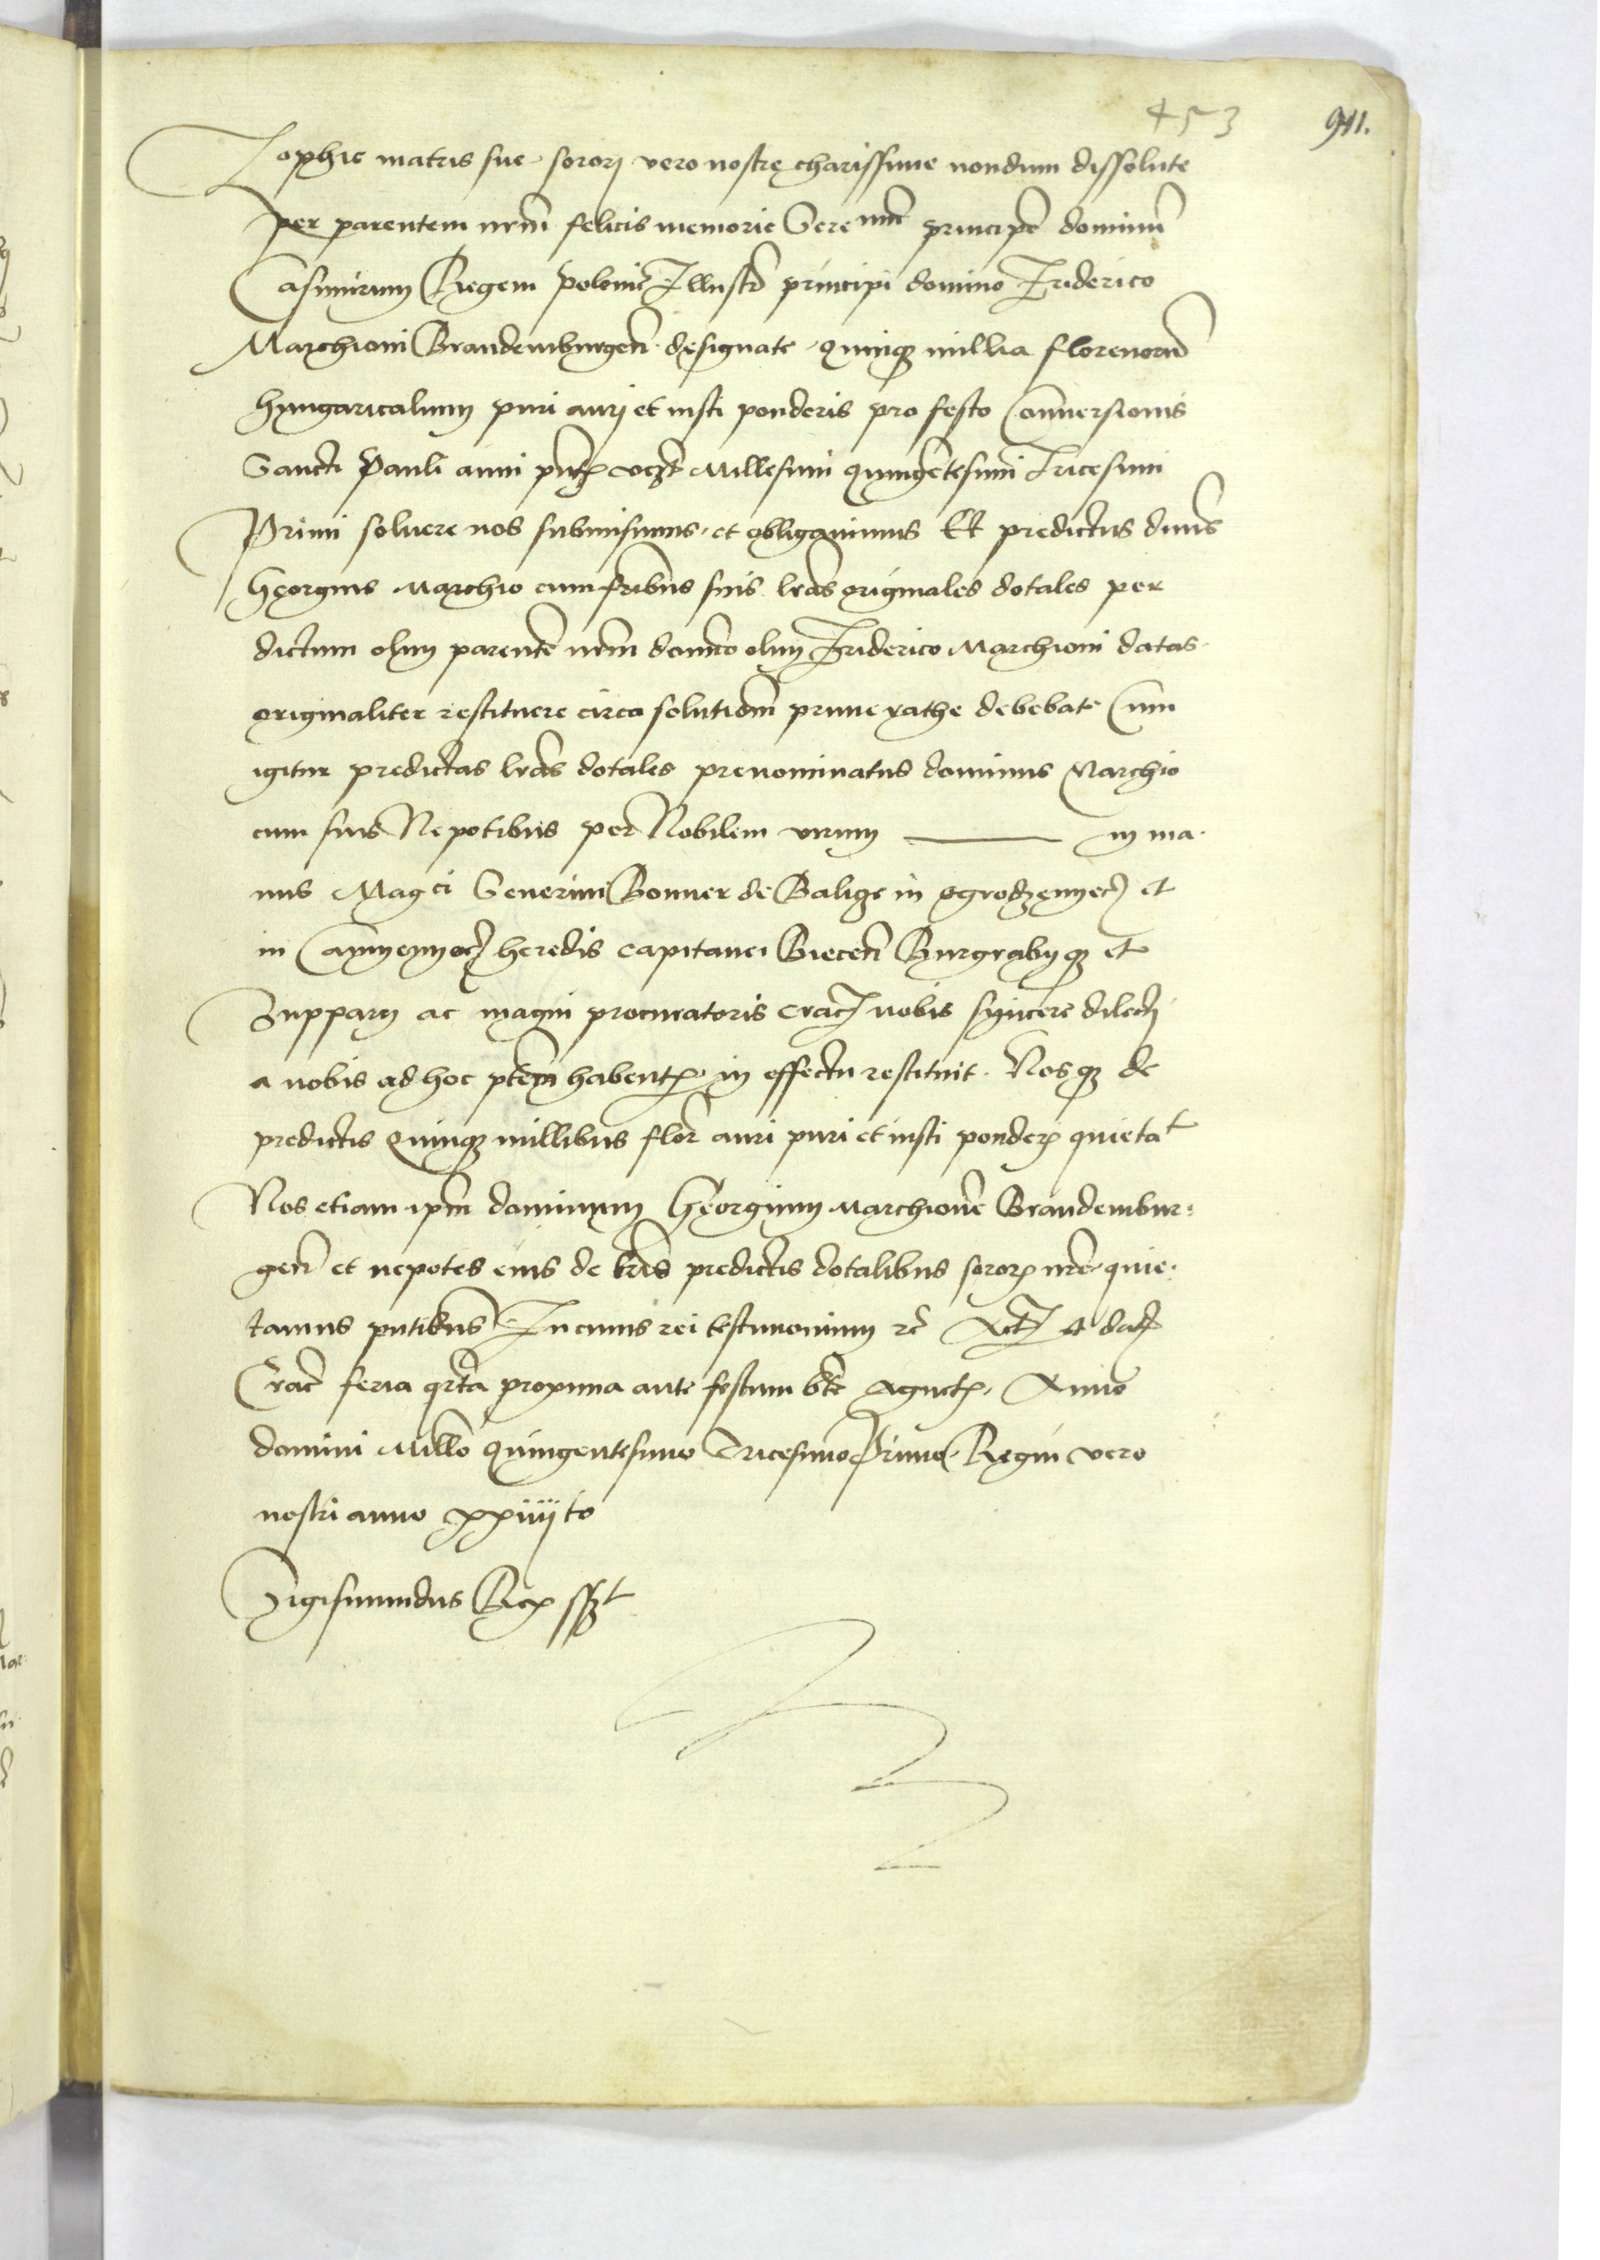 453
911.
Zophie matris sue sorori vero nostrę charissime nondum dissolute
per parentem nrm̃ felicis memorie Sere nm̃ principẽ dominũ
Casimirum Regem Polonie Illustri principi domino Friderico
Marchioni Brandemburgeñ designate quinqȝ millia florenorũ
hungaricalium puri auri et iusti ponderis pro festo Conversionis
Sancti Pauli anni pñtis vcȝt Millesimi quingẽtesimi Tricesimi
Primi soluere nos submisimus et obligauimus Et predictus dñus
Georgius Marchio cum fribus suis lras originales dotales per
dictum olim parentẽ nrm̃ domino olim Friderico Marchioni datas
originaliter restituere circa solutiõm prime rathe debebat Cum
igitur predictas lras dotales prenominatus dominus Marchio
cum suis Nepotibus per Nobilem virum ——— in ma-
nus Mag ci Seuerini Bonner de Balicze in ogrodzyenyecz et
in Camyenyecz heredis Capitanei Bieceñ Burgrabij qȝ et
Zupparij ac magni procuratoris Crac̃ nobis syncere dilecti
a nobis ad hoc ptẽm habentis in effectu restituit. Nosqȝ de
predictis quinqȝ millibus flor̃ auri puri et iusti ponderis quietat
Nos etiam ipm̃ dominum Georgium Marchionẽ Brandembur:
geñ et nepotes eius de lris predictis dotalibus sororis nrẽ quie-
tamus pñtibus In cuius rei testimonium rc̃ Act et dat
Crac̃ feria qrta proxima ante festum btẽ Agnetis Anno
domini Millõ quingentesimo Tricesimo Primo Regni vero
nostri anno xxiiij to
Sigismundus Rex sst